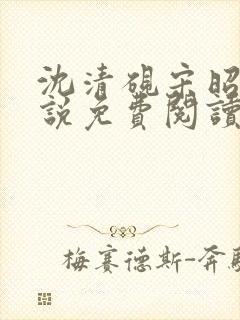 沈清硯宋昭
說免費閱讀
梅賽德斯-奔馳